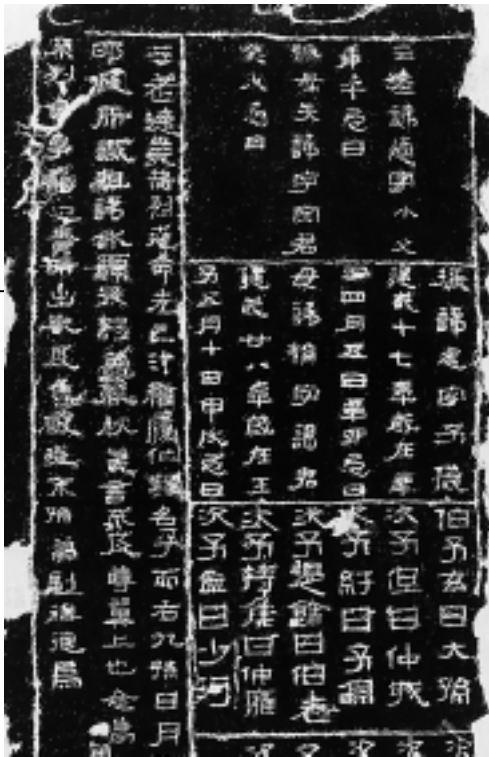 三老諱通字小父
庚午忌日
祖母失諱字宗君
癸未忌日
掾諱忽字子儀
建武十七年歲在辛
丑四月五日辛卯忌日
母諱捐字謁君
建武廿八年歲在壬
子五月十日甲戌忌日
伯子玄曰大孫
次子但曰仲城
次子紆曰子淵
次子提餘曰伯老
次子持侯曰仲雍
次子盆曰少河
三老德業赫烈克命先己汁稽履化難名兮而右九孫日月
虧代所識祖諱欽顯後嗣蓋春秋義言不及尊翼上也念高
列言事觸忌貴所出嚴及焦敬曉末孫冀副祖德焉